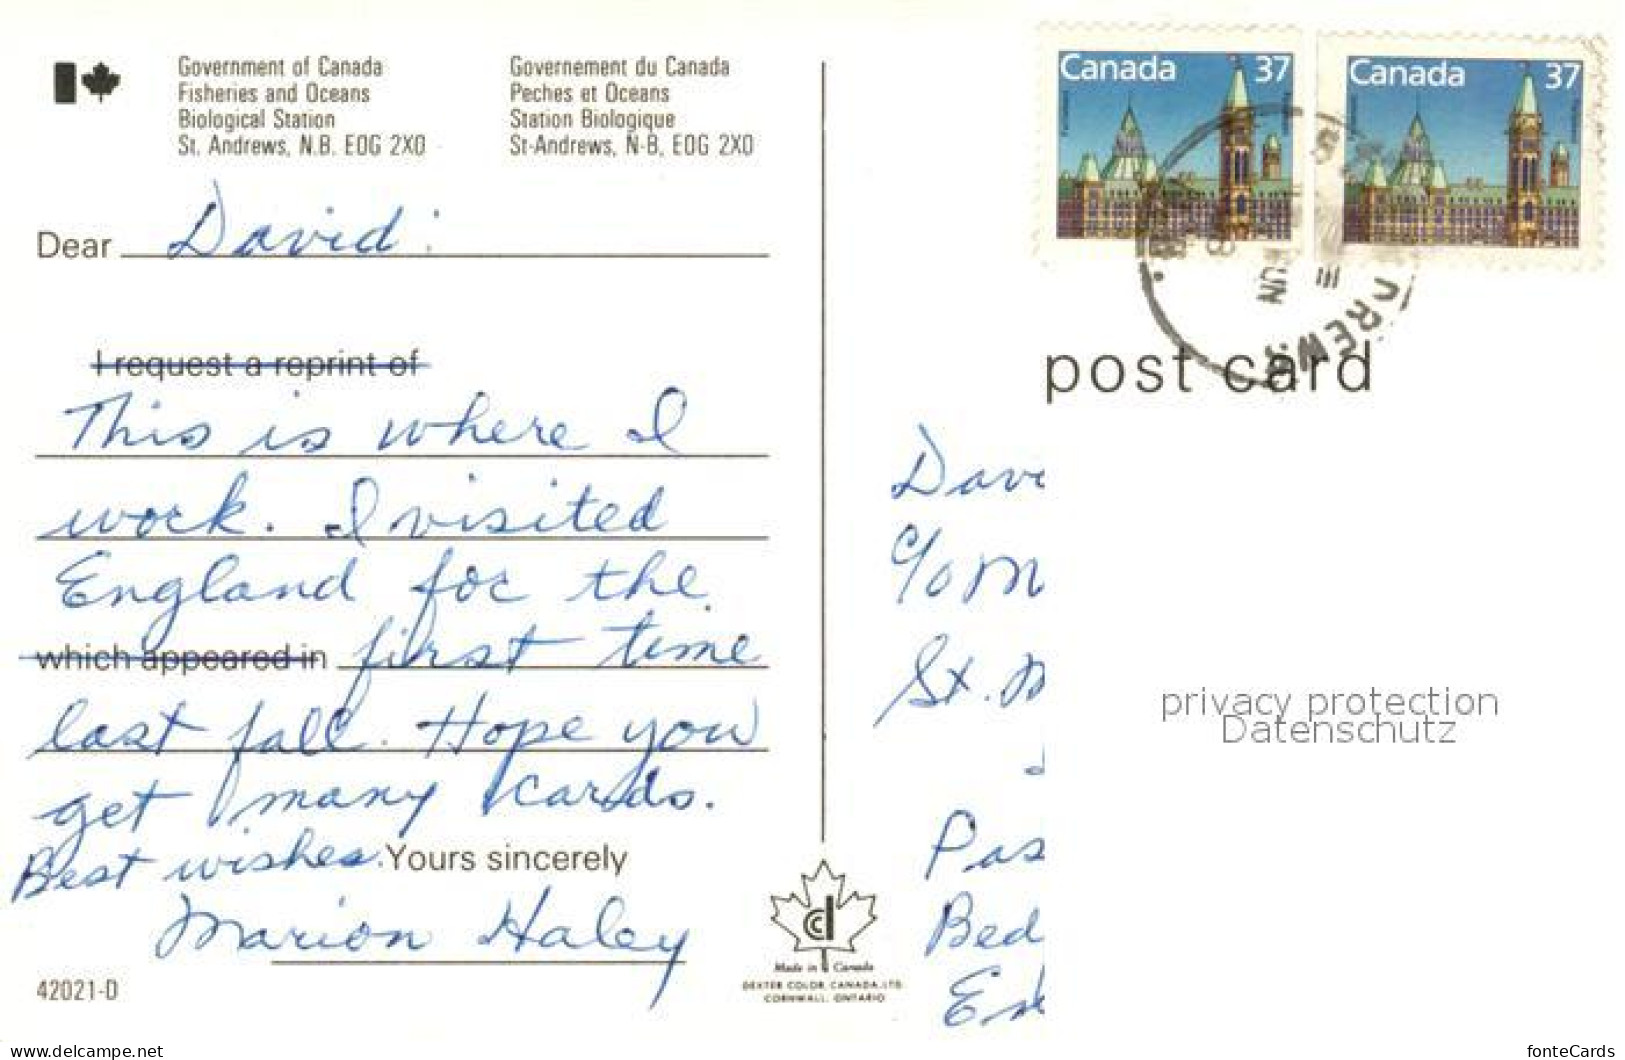 Government of Canada
Fisheries and Oceans
Biological Station
St. Andrews, N.B. E0G 2X0
Governement du Canada
Peches et Oceans
Station Biologique
St-Andrews, N-B, E0G 2X0
Canada 37
Canada 37
Dear David:
I request a reprint of
This is where I
work. I visited
England for the
which appeared in first time
last fall. Hope you
get many cards.
Best wishes. Yours sincerely
Marion Haley
42021-D
Made in Canada
DEXTER COLOR CANADA, LTD.
CORNWALL, ONTARIO
post card
Dav
c/o M
St. M
Pas
Bed
privacy protection
Datenschutz
www.delcampe.net
fonteCards